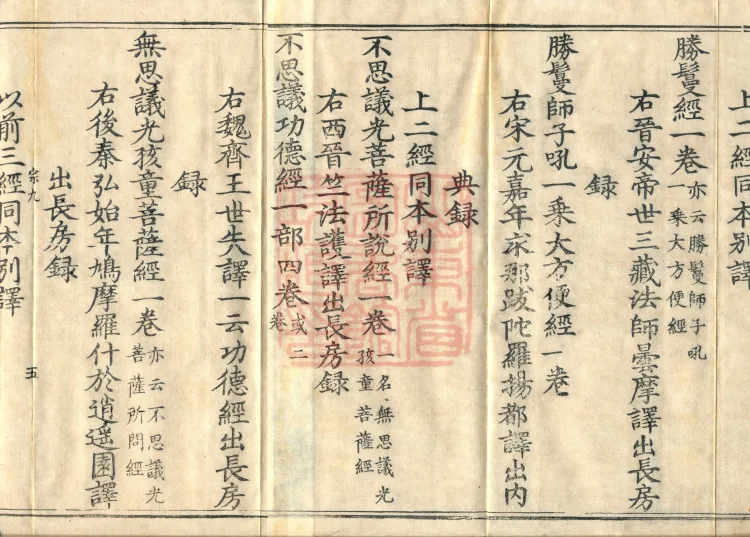 上二經同本別譯
勝鬘經一卷亦云勝鬘師子吼
一乘大方便經
右晉安帝世三藏法師曇摩譯出長房
録
勝鬘師子吼一乗大方便經一卷
右宋元嘉年求那跋陀羅揚都譯出内
典録
上二經同本别譯
不思議光菩薩所說經一卷一名無思議光
孩童菩薩經
右西晉竺法護譯出長房録
不思議功德經一部四卷或二
卷
右魏齊王世失譯一云功德經出長房
録
無思議光孩童菩薩經一卷亦云不思議光
菩薩所問經
右後秦弘始年鳩摩羅什於逍遥園譯
出長房録
五
以前三經同本別譯